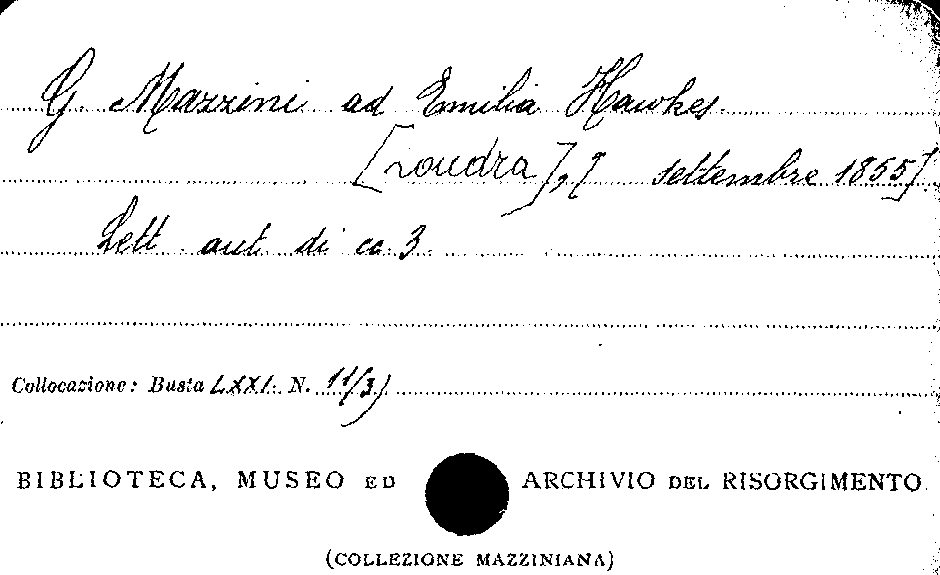 G. Mazzini ad Emilia Hawkes
[Londra], [ settembre 1855]
Lett. aut. di cc. 3.
Collocazione: Busta LXXI. N. 11/3)
BIBLIOTECA, MUSEO ED ARCHIVIO DEL RISORGIMENTO
(COLLEZIONE MAZZINIANA)